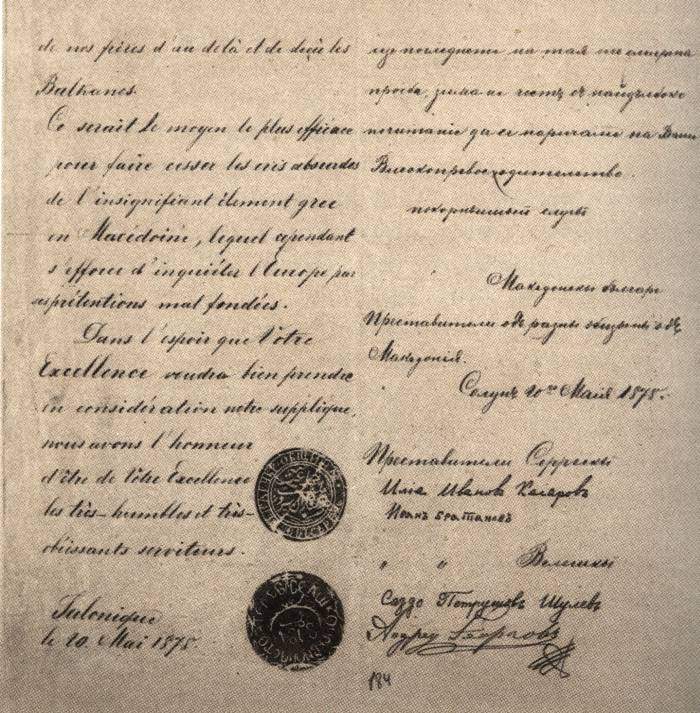 de nos frères d'au delà et de deçà les
Balkans.
Ce serait le moyen le plus efficace
pour faire cesser les cris absurdes
de l'insignifiant élément grec
en Macédoine, lequel cependant
s'efforce d'inquiéter l'Europe par
ses prétentions mal fondées.
Dans l'espoir que Vôtre
Excellence voudra bien prendre
en considération notre supplique,
nous avons l'honneur
d'être de Vôtre Excellence
les très-humbles et très-
obéissants serviteurs.
Salonique
le 20 Mai 1878.
на тая
просба, имаме честь съ найдълбоко
почитание да се наричаме на Ваше
Високопревосходителство.
покорнѣйший
Македонски българе
Преставители одъ разны общыны одъ
Македонія.
Солунъ 20ый Майя 1878.
Преставители Серрскый
Иліа Ивановъ Касаровъ
Иоанъ Братановъ
" " Велешкый
Саздо Петрушовъ Шулевъ
Андреу Георговъ
184